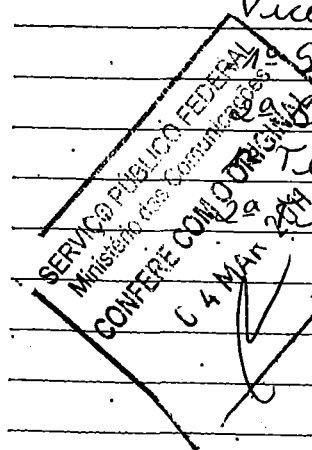 Vice
1º S
2ª
Te
2ª
SERVIÇO PÚBLICO FEDERAL
Ministério das Comunicações
CONFERE COM O ORIGINAL
04 MAR 2011